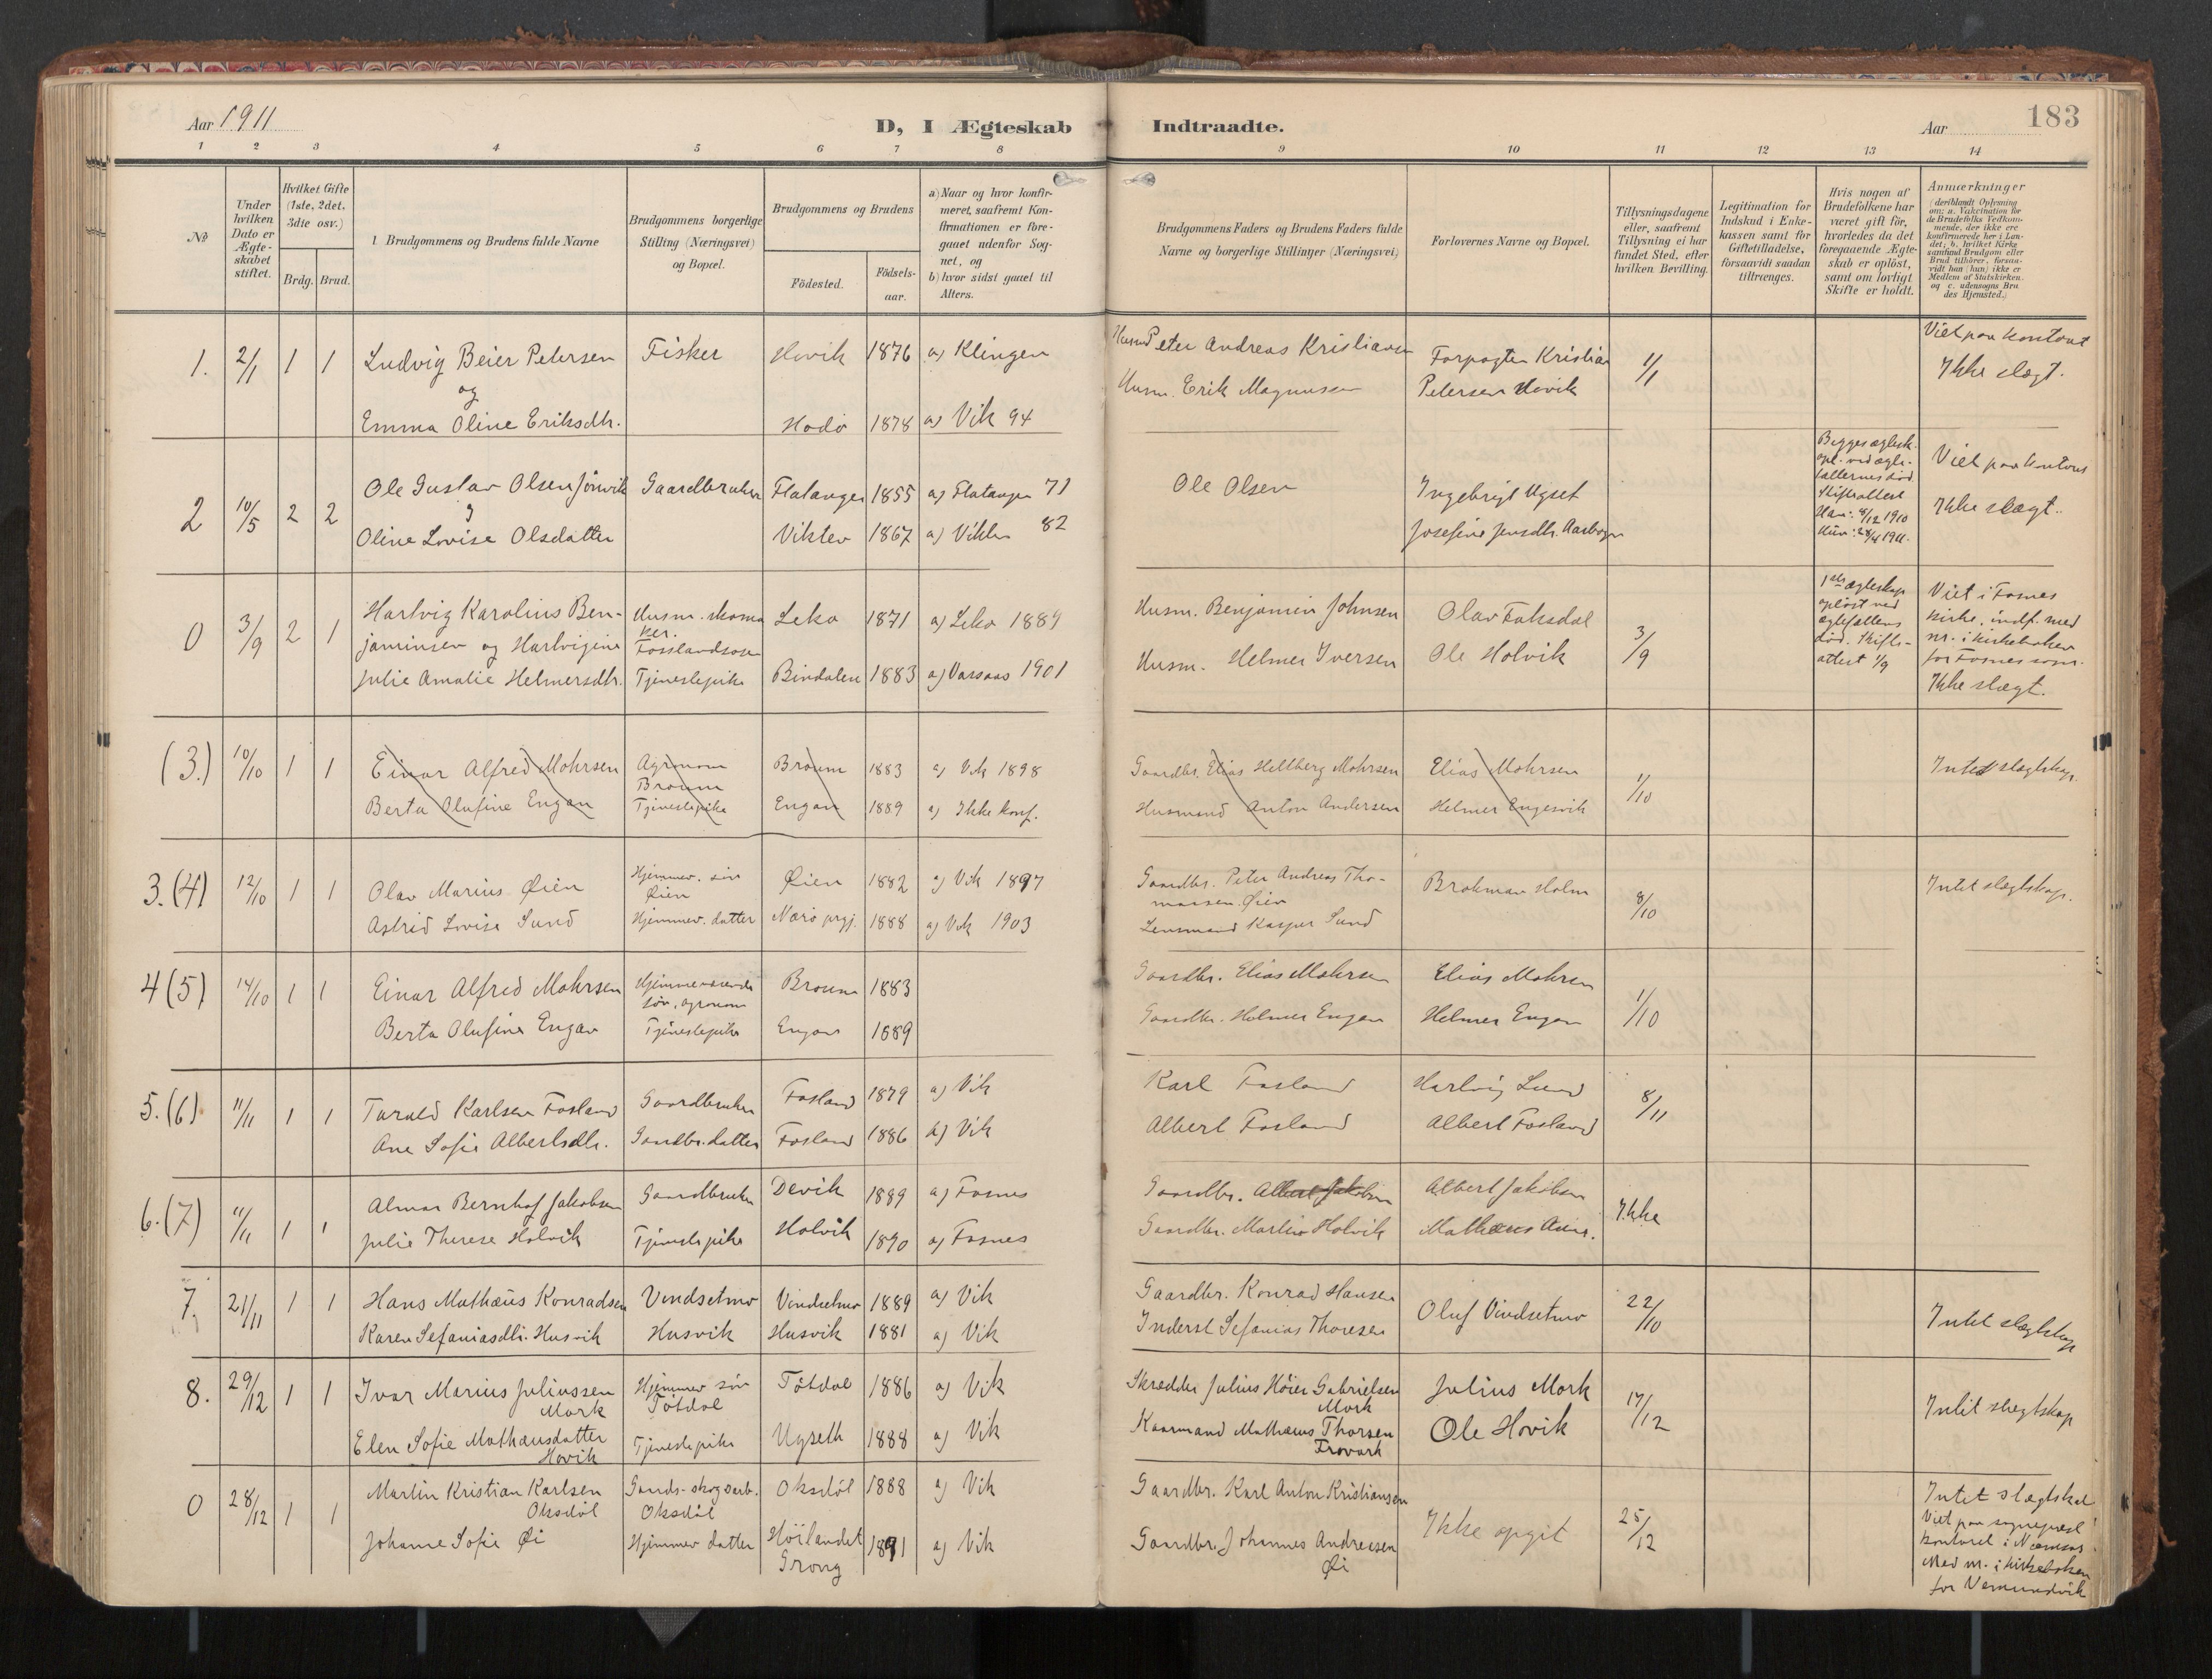 Aar 1911
D, I Ægteskab
Indtraadte.
Aar
183
1 2 3 4 5 6 7 8 9 10 11 12 13 14
No
Under hvilken Dato er Ægte-skabet stiftet.
Hvilket Gifte (1ste, 2det, 3die osv.)
Brdg. Brud.
Brudgommens og Brudens fulde Navne
Brudgommens borgerlige Stilling (Næringsvei) og Bopæl.
Brudgommens og Brudens
Födested.
Födsels-aar.
a) Naar og hvor konfir-meret, saafremt Kon-firmationen er fore-gaaet udenfor Sog-net, og
b) hvor sidst gaaet til Alters.
Brudgommens Faders og Brudens Faders fulde Navne og borgerlige Stillinger (Næringsvei)
Forlovernes Navne og Bopæl.
Tillysningsdagene eller, saafremt Tillysning ei har fundet Sted, efter hvilken Bevilling.
Legitimation for Indskud i Enke-kassen samt for Giftetilladelse, forsaavidt saadan tiltrænges.
Hvis nogen af Brudefolkene har været gift för, hvorledes da det foregaaende Ægte-skab er oplöst, samt om lovligt Skifte er holdt.
Anmærkninger (deriblandt Oplysning om: a. Vakcination for de Brudefolks Vedkom-mende, der ikke ere konfirmerede her i Lan-det; b. hvilket Kirke samfund Brudgom eller Brud tilhörer, forsaa-vidt han (hun) ikke er Medlem af Statskirken og c. udensogns Bru des Hjemsted.)
1. 2/1 1 1 Ludvig Beier Petersen Fisker Hovik 1876 a) Klingen Husm Peter Andreas Kristiansen Forpagter Kristian 1/1 Viet paa kontoret
og Husm. Erik Magnussen Petersen Hovik Ikke slægt.
Emma Oline Eriksdtr. Hodö 1878 a) Vik 94
2 10/5 2 2 Ole Gustav Olsen Gaardbruker Flatanger 1855 a) Flatanger 71 Ole Olsen Ingebrigt Ugset Begges ægtesk. opl. ved ægte-fællernes död. Skifteattest Han: 8/12 1910 Hun: 28/4 1911. Viet paa kontoret
Oline Lovise Olsdatter Vikten 1867 a) Vikten 82 Josefine Jensdtr. Ikke slægt.
0 3/9 2 1 Hartvig Karolius Ben- Husm. skoma Leka 1871 a) Leka 1889 Husm. Benjamin Johnsen Olav Faksdal 3/9 1ste ægteskap oplöst ved ægtefællens död. Skifte-attest 1/9 Viet i Fosnes
jaminsen og Hartvigine ker. Fosslandsosen kirke, indf. med
Julie Amalie Helmersdtr. Tjenestepike Bindalen 1883 a) 1901 Husm. Helmer Iversen Ole Holvik nr. i kirkeboken
for Fosnes sogn.
Ikke slægt.
(3.) 10/10 1 1 Einar Alfred Mohrsen Agronom Broum Broum 1883 a) Vik 1898 Gaardbr. Elias Hellberg Mohrsen Elias Mohrsen 1/10 Intet slægtskap
Berta Olufine Engan Tjenestepike Engan 1889 a) Ikke konf. Husmand Anton Andersen Helmer Engesvik
3. (4) 12/10 1 1 Olav Marius Øien Hjemmev. sön Øien Øien 1882 a) Vik 1897 Gaardbr. Peter Andreas Tho-massen Øien Brokman Holm 8/10 Intet slægtskap.
Astrid Lovise Sund Hjemmev. datter Nærö prgj. 1888 a) Vik 1903 Lensmand Kasper Sund
4 (5) 14/10 1 1 Einar Alfred Mohrsen Hjemmeværende sön, agronom Broum 1883 Gaardbr. Elias Mohrsen Elias Mohrsen 1/10
Berta Olufine Engan Tjenestepike Engan 1889 Gaardbr. Helmer Engan Helmer Engan
5. (6) 11/11 1 1 Torald Karlsen Fosland Gaardbruker Fosland 1879 a) Vik Karl Fosland Hartvig Lund 8/11
Ane Sofie Albertsdtr. Gaardbr. datter Fosland 1886 a) Vik Albert Fosland Albert Fosland
6. (7) 11/11 1 1 Almar Bernhof Jakobsen Gaardbruker Devik 1889 a) Fosnes Gaardbr. Albert Jakobsen Albert Jakobsen Ikke
Julie Therese Holvik Tjenestepike Holvik 1890 a) Fosnes Gaardbr. Martin Holvik Mathæus Aune.
7. 21/11 1 1 Hans Mathæus Konradsen Vendsetmo Vindsetmo 1889 a) Vik Gaardbr. Konrad Hansen Oluf Vindsetmo 22/10 Intet slægtskap
Karen Sefaniasdtr. Husvik Husvik Husvik 1881 a) Vik Inderst Sefanias Thoresen
8. 29/12 1 1 Ivar Marius Juliussen Mork Hjemmev sön Tötdal Tötdal 1886 a) Vik Skrædder Julius Höier Gabrielsen Mork Julius Mork 17/12 Intet slægtskap
Elen Sofie Mathæusdatter Hovik Tjenestepike Ugseth 1888 a) Vik Kaarmand Mathæus Thorsen Ole Hovik
0 28/12 1 1 Martin Kristian Karlsen Oksdöl Gaards-skogsarb. Oksdöl Oksdöl 1888 a) Vik Gaardbr. Karl Anton Kristiansen Ikke opgit 25/12 Intet slægtskab
Johanne Sofie Øi Hjemmev datter Höilandet Grong 1891 a) Vik Gaardbr. Johannes Andreasen Øi Viet paa sogneprest
kontoret i Namsos.
Med nr. i kirkeboken
for Vemundvik